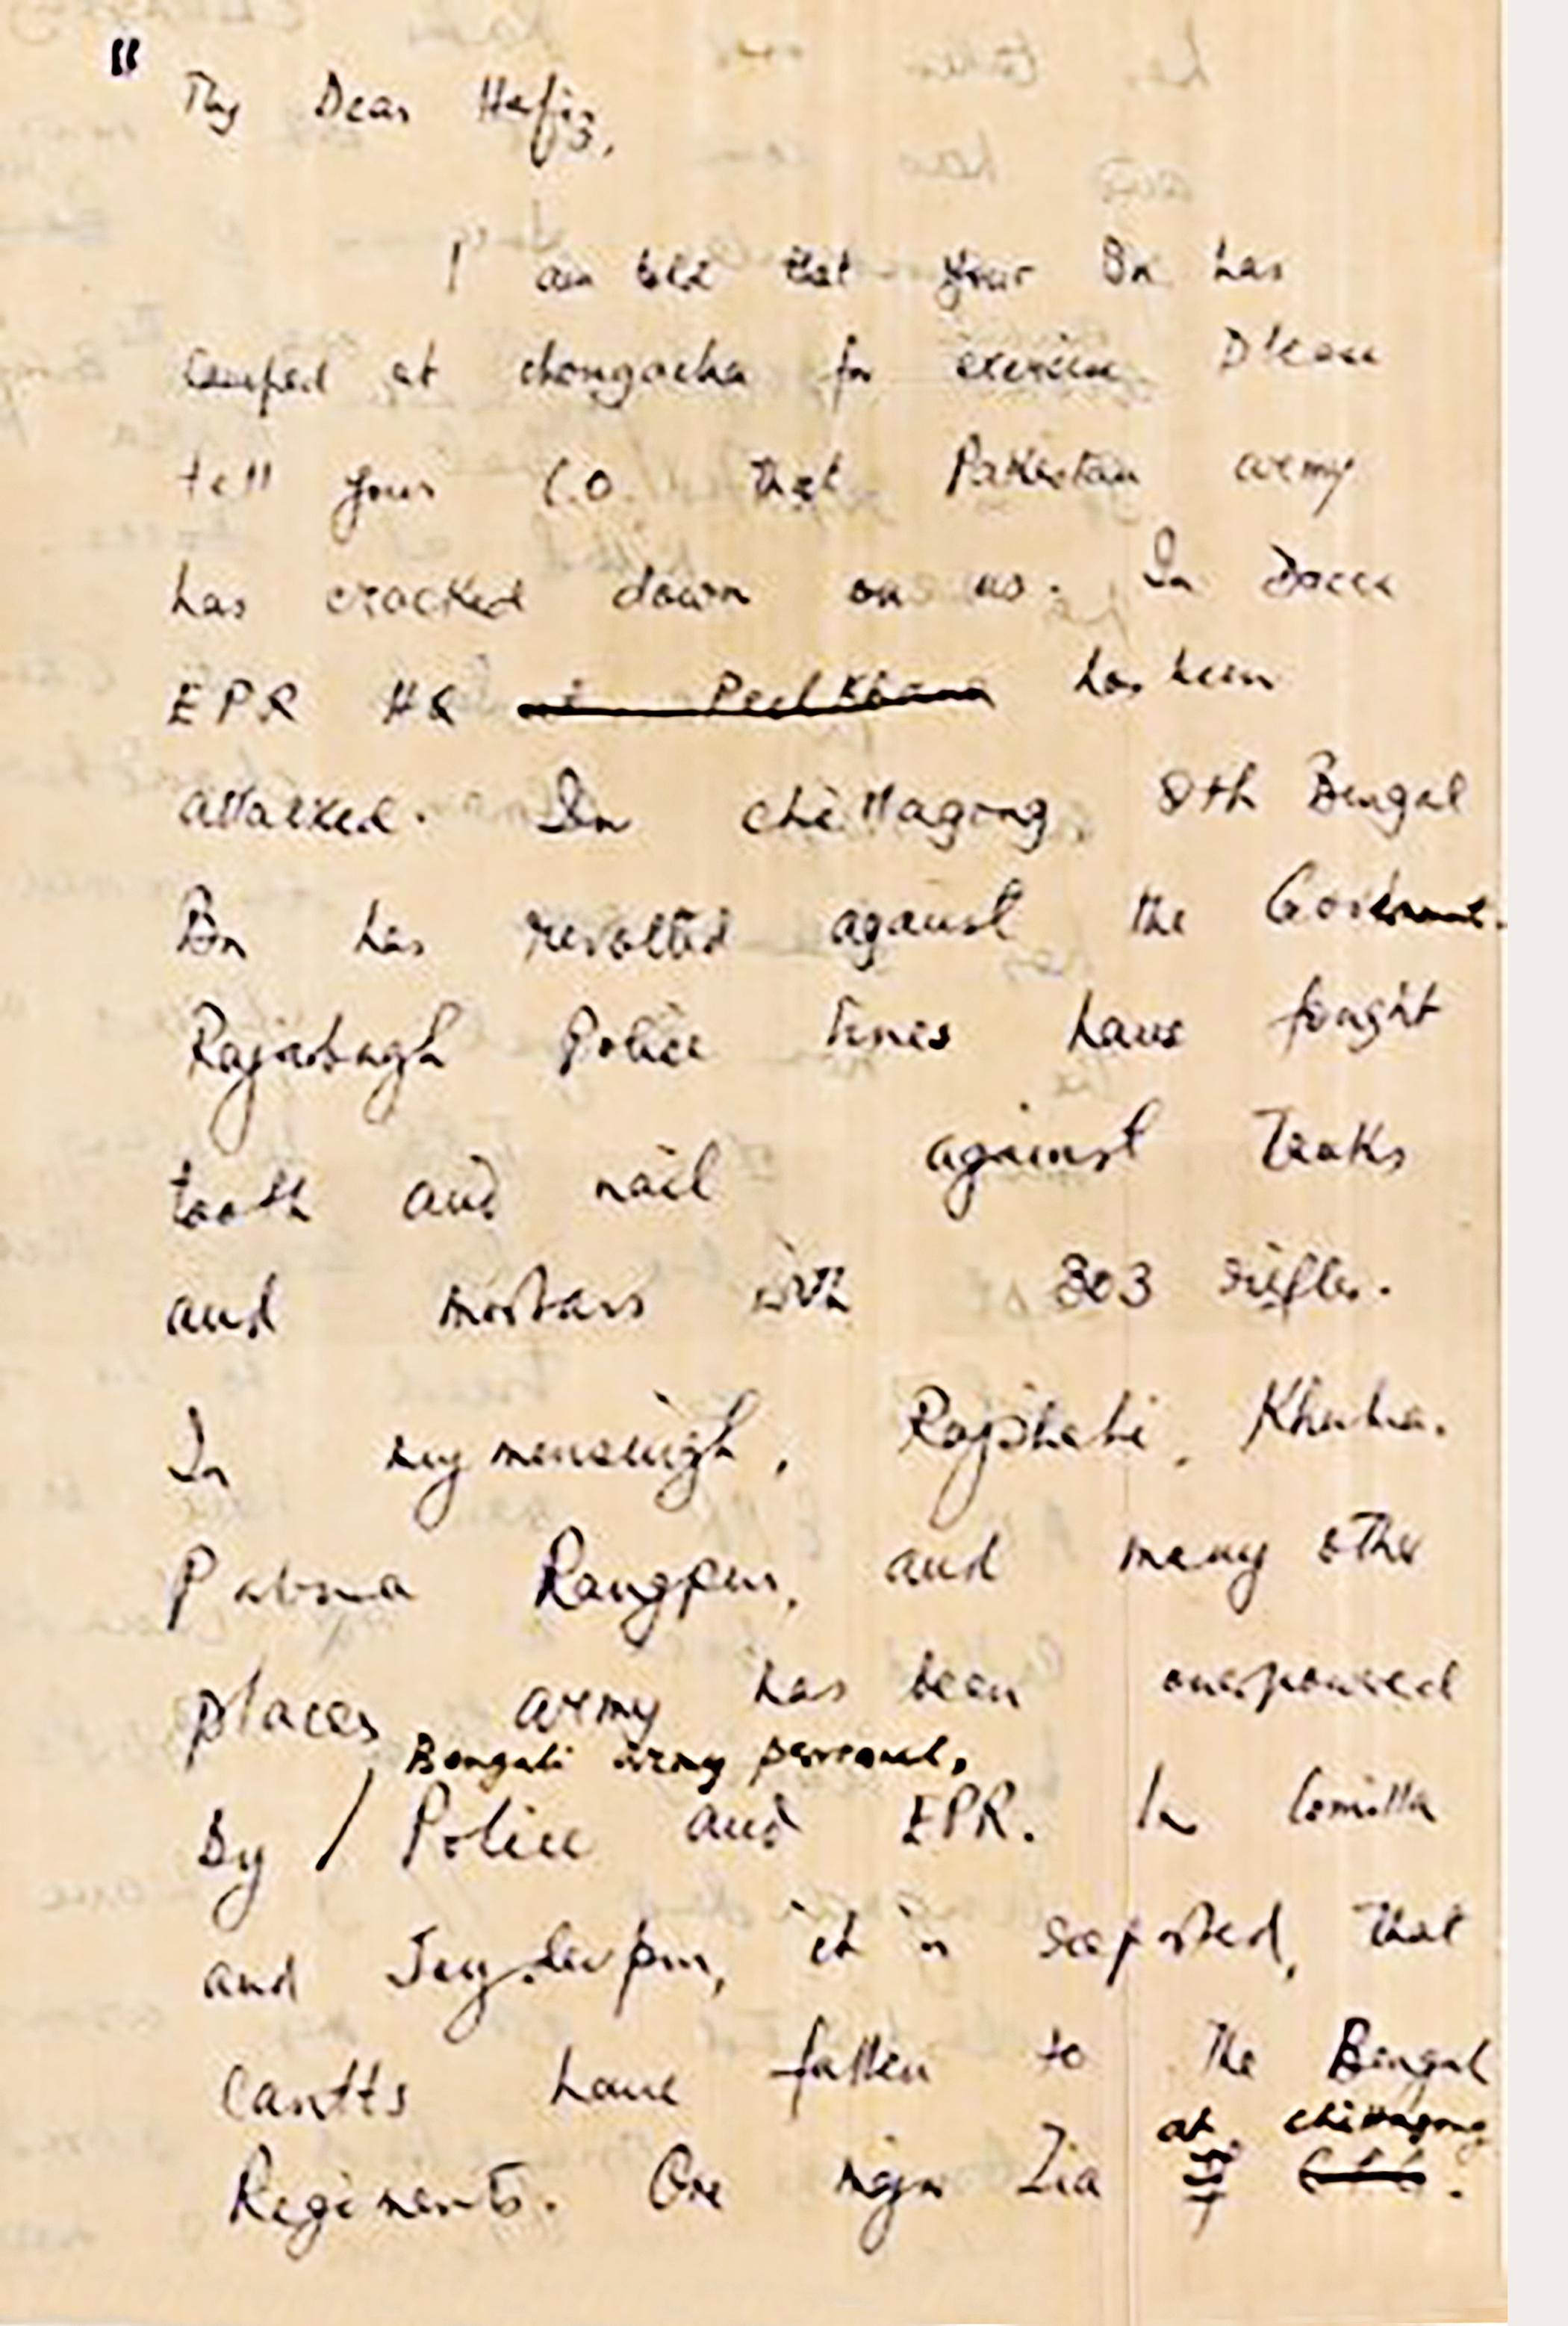 "
My Dear Hafiz,
I am told that your Bn has
camped at chowgacha for exercise Please
tell your C.O. that Pakistan army
has cracked down on us. In Dacca
EPR HQ at Peel Khana has been
attacked. In chittagong, 8th Bengal
Bn has revolted against the Government.
Rajarbagh Police lines have fought
tooth and nail against Tanks
and mortars with 303 rifles.
In mymensingh, Rajshahi, Khulna.
Pabna Rangpur, and many other
places army has been overpowered
Bengali army personnel,
By / Police and EPR. In Comilla
and Joydevpur, it is reported, that
Cantts have fallen to the Bengal
at chittagong
Regiments. One major Zia